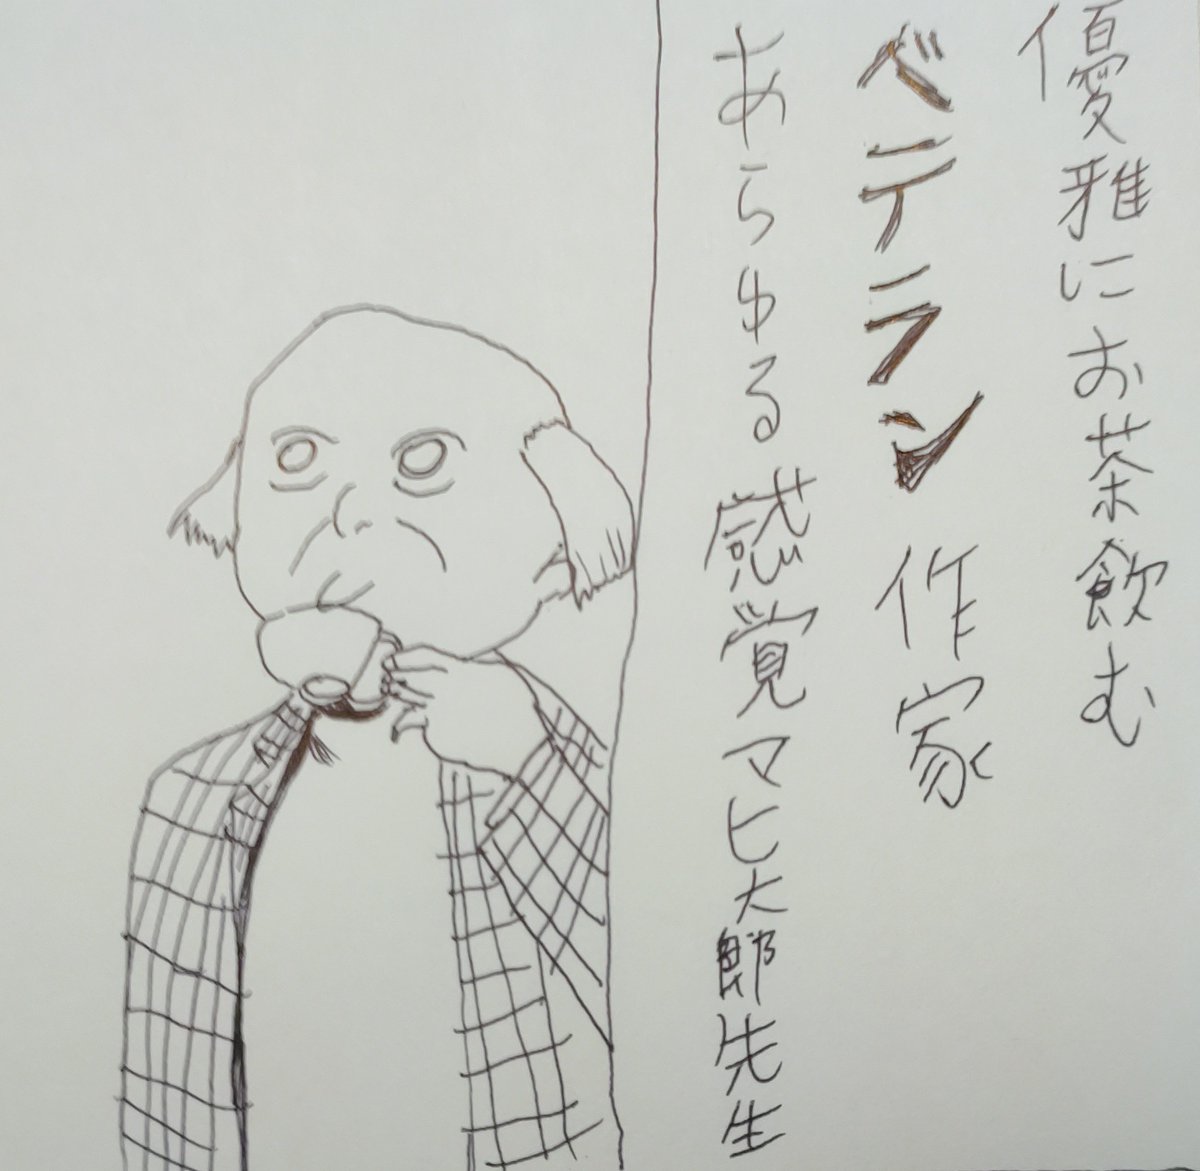 優雅にお茶飲む
ベテラン作家
あらゆる感覚マヒ太郎先生